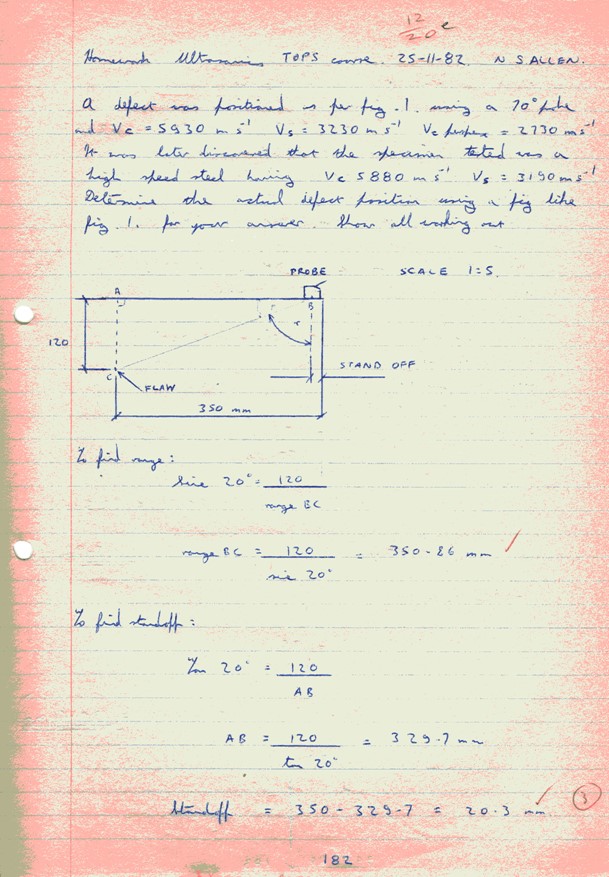 12
20 e
Homework Ultrasonics TOPS course. 25-11-82. N S ALLEN.
A defect was positioned as per fig. 1. using a 70° probe
and Vc = 5930 m s⁻¹ Vs = 3230 m s⁻¹ Vc perspex = 2730 ms⁻¹
It was later discovered that the specimen tested was a
high speed steel having Vc 5880 m s⁻¹ Vs = 3190 ms⁻¹
Determine the actual defect position using a fig like
fig. 1. for your answer. Show all working out
PROBE SCALE 1:5.
A
B
120
STAND OFF
C
FLAW
350 mm
To find range:
Sine 20° = 120
range BC
range BC = 120 = 350.86 mm ✓
sine 20°
To find standoff:
Tan 20° = 120
AB
AB = 120 = 329.7 mm
tan 20°
Standoff = 350 - 329.7 = 20.3 mm. ✓ 3
182